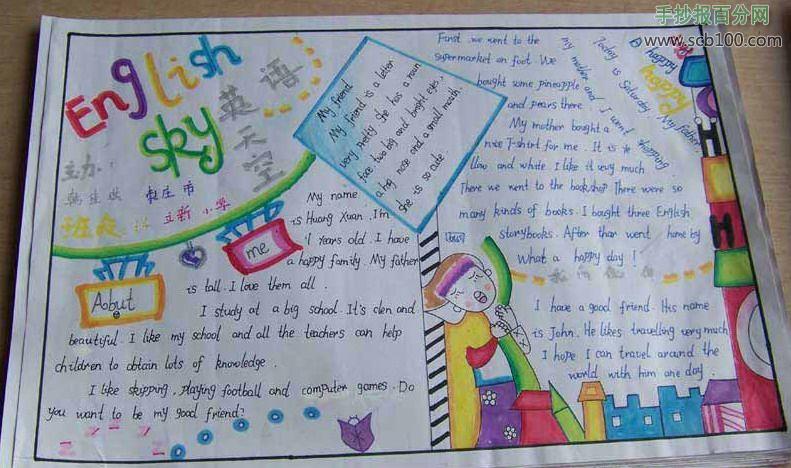 手抄报百分网
www.scb100.com
English
sky
英语
天空
主办:
枣庄市
立新小学
Aobut
me
My name
is Huang Xuan. I'm
11 years old. I have
a happy family. My father
is tall. I love them all.
I study at a big school. It's clen and
beautiful. I like my school and all the teachers can help
children to obtain lots of knowledge.
I like skipping, playing football and computer games. Do
you want to be my good friend?
My friend
My friend is a letter
very pretty she has a roun
face two big and bright eyes,
a hig nose and a small mouth.
she is so cute
A happy
happy
Today is Saturday. My father,
my mother and I went shopping
First we went to the
supermarket on foot. We
bought some pineapple
and pears there.
My mother bought a
nice T-shirt for me. It is
llow and white I like it very much.
There we went to the bookshop There were so
many kinds of books. I bought three English
storybooks. After than went home by
What a happy day!
I have a good friend. His name
is John. He likes travelling very much
I hope I can travel around the
world with him one day.